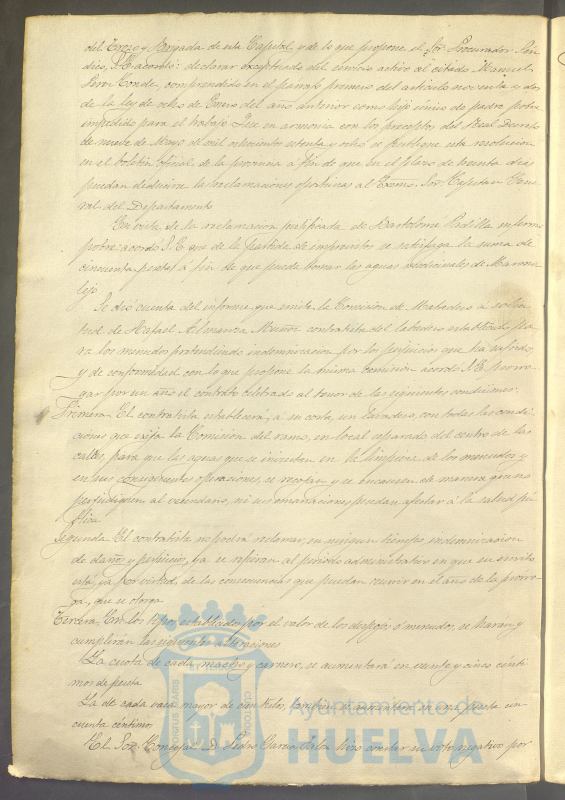 del Trozo y Brigada de esta Capital y de lo que propone el Sor. Procurador Sin-
dico, S. E. acordó: declarar exceptuado del servicio activo al citado Manuel
Pern Conde, comprendido en el parrafo primero del articulo noventa y dos
de la ley de ocho de Enero del año anterior como hijo único de padre pobre
impedido para el trabajo. Que en armonia con los preceptos del Real Decreto
de nueve de Mayo de mil ochocientos setenta y ocho se publique esta resolucion
en el boletin oficial de la provincia á fin de que en el plazo de treinta dias
puedan deducirse las reclamaciones oportunas al Excmo. Sor. Capitan Gene-
ral del Departamento
En vista de la reclamacion justificada de Bartolomé Padilla enfermo
pobre acordó S. E. que de la partida de imprevistos se satisfaga la suma de
cincuenta pesetas á fin de que pueda tomar las aguas medicinales de Marmo-
lejo
Se dió cuenta del informe que emite la Comision de Matadero á solici-
tud de Rafael Almansa Muñoz contratista del lavadero establecido pa-
ra los menudos pretendiendo indemnizacion por los perjuicios que ha sufrido,
y de conformidad con lo que propone la misma Comision acordó S. E. prorro-
gar por un año el contrato celebrado al tenor de las siguientes condiciones:
Primera. El contratista establecerá, á su costa, un lavadero, con todas las condi-
ciones que exija la Comision del ramo, en local separado del centro de las
calles, para que las aguas que se inviertan en la limpieza de los menudos y
en sus consiguientes operaciones, se recojan y se encaucen de manera que no
perjudiquen al vecindario, ni sus emanaciones puedan afectar á la salud pú-
blica
Segunda. El contratista no podrá reclamar, en ningun tiempo indemnizacion
de daños y perjuicios, ya se refieran al periodo administrativo en que su escrito
está, ya por virtud de las consecuencias que puedan ocurrir en el año de la prorro-
ga, que se otorga
Tercera. En los tipos, establecidos por el valor de los despojos ó menudos, se harán y
cumplirán las siguientes alteraciones
La cuota de cada macho y carnero, se aumentará en veinte y cinco cénti-
mos de peseta
La de cada vaca mayor de cien kilos, tambien se aumentará en una peseta cin-
cuenta céntimos
El Sor. Concejal D. Pedro Garcia hizo constar su voto negativo por
Ayuntamiento de
HUELVA